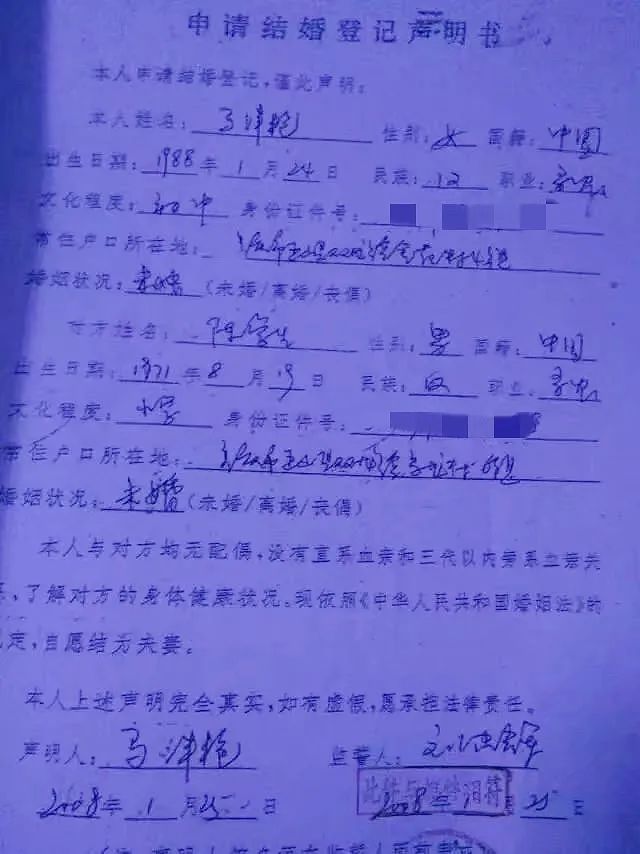 申请结婚登记声明书
本人申请结婚登记，谨此声明：
本人姓名：马泮艳 性别：女 国籍：中国
出生日期：1988年1月24日 民族：汉 职业：务农
文化程度：初中 身份证件号：
常住户口所在地：
婚姻状况：未婚（未婚/离婚/丧偶）
对方姓名：陈学生 性别：男 国籍：中国
出生日期：1971年8月19日 民族：汉 职业：务农
文化程度：小学 身份证件号：
常住户口所在地：
婚姻状况：未婚（未婚/离婚/丧偶）
本人与对方均无配偶，没有直系血亲和三代以内旁系血亲关
系，了解对方的身体健康状况。现依照《中华人民共和国婚姻法》的
规定，自愿结为夫妻。
本人上述声明完全真实，如有虚假，愿承担法律责任。
声明人：马泮艳 监誓人：
2008年1月25日 2008年 月25日
此件与档案相符